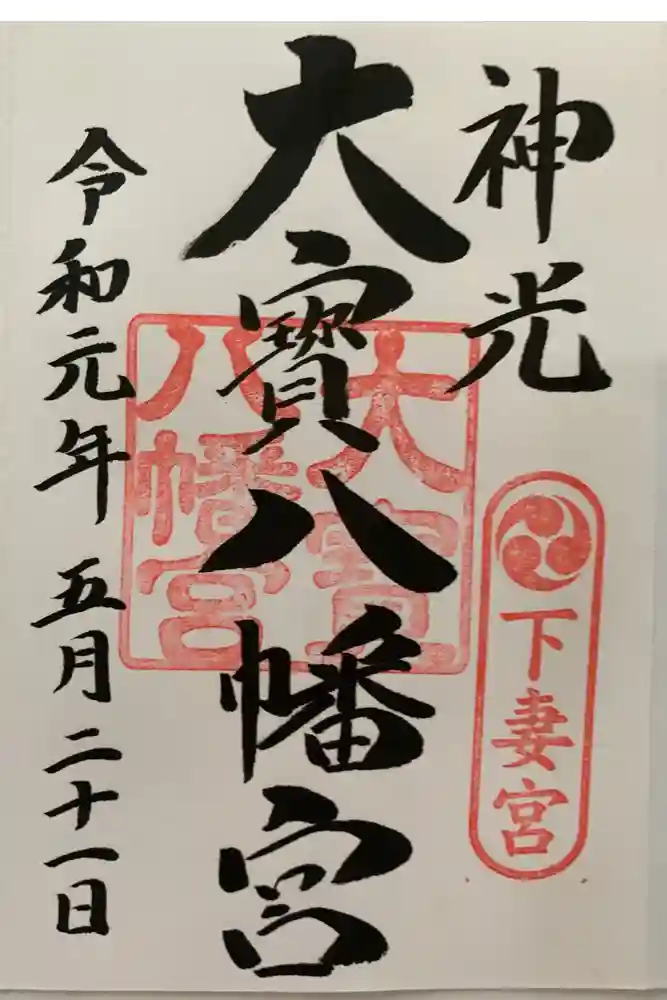 神光
下妻宮
大寶八幡宮
大寶
八幡宮
令和元年 五月二十一日